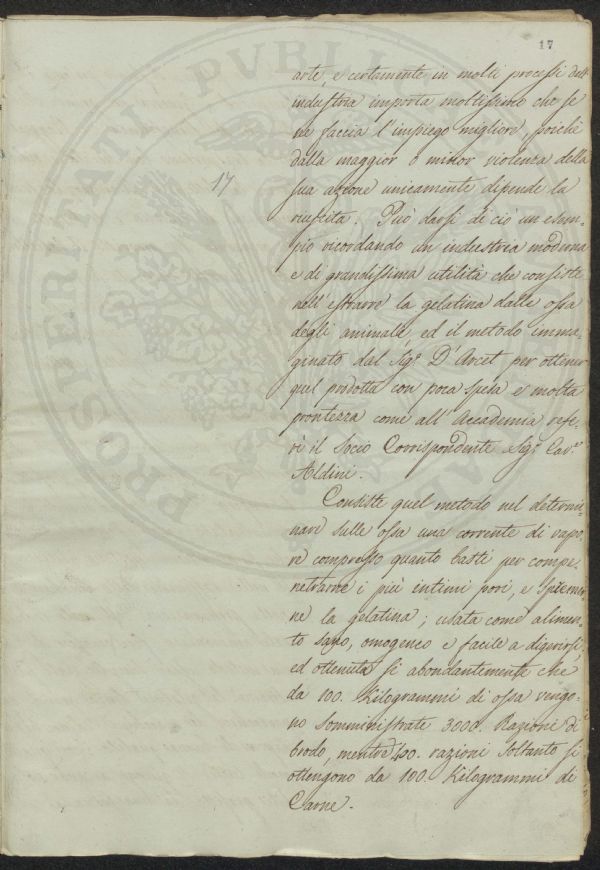 17
17
arte, e certamente in molti processi dell'
industria importa moltissimo che se
ne faccia l'impiego migliore, poichè
dalla maggior o minor violenza della
sua azione unicamente dipende la
riuscita. Può darsi di ciò un esem=
pio ricordando un industria moderna
e di grandissima utilità che consiste
nell'estrarre la gelatina dalle ossa
degli animali, ed il metodo imma=
ginato dal Sig.r D'Arcet per ottener
quel prodotto con poca spesa e molta
prontezza come all'Accademia rife=
rì il Socio Corrispondente Sig.r Cav.e
Aldini.
Consiste quel metodo nel determi=
nare sulle ossa una corrente di vapo=
re compresso quanto basti per compe=
netrarne i più intimi pori, e spremer
ne la gelatina; usata come alimen=
to sano, omogeneo e facile a digerirsi,
ed ottenuta sì abondantimente che
da 100. Kilogrammi di ossa vengo=
no somministrate 3000. Razioni di
brodo, mentre 400. razioni soltanto si
ottengono da 100. Kilogrammi di
Carne.
PROSPERITATI PVBLIC